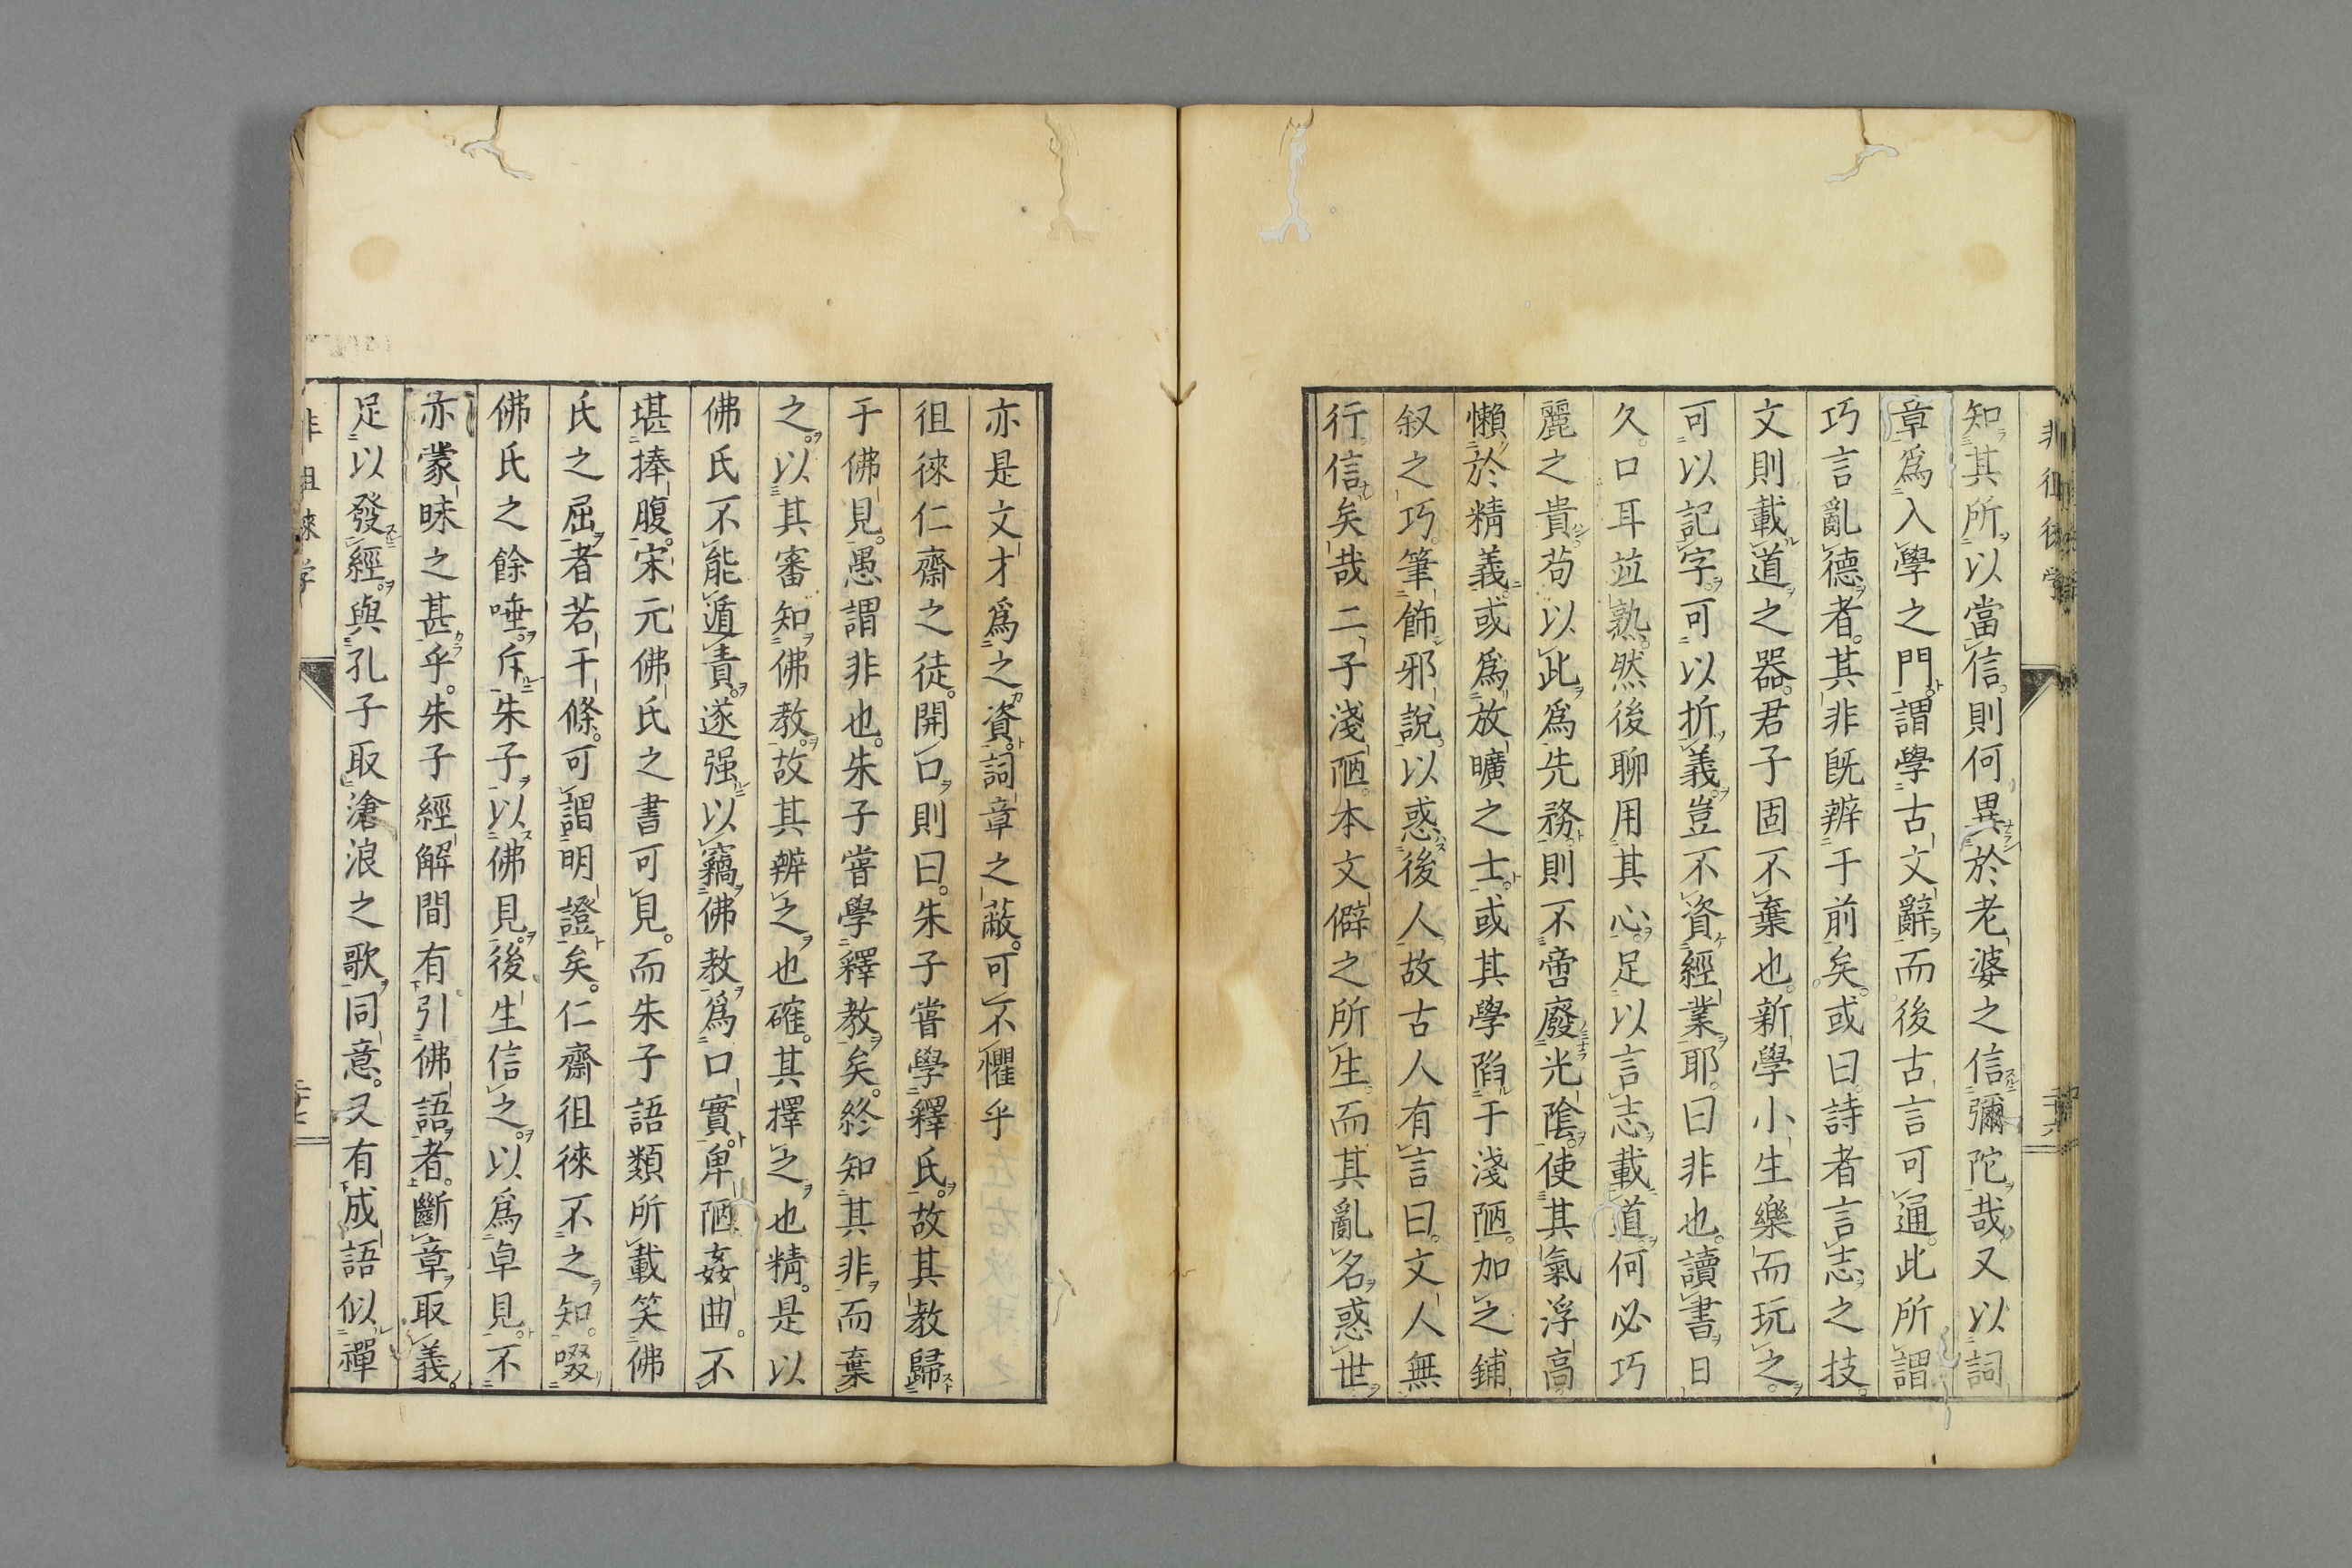 知其所以當信則何異於老婆之信彌陀哉又以詞
章爲入學之門謂學古文辭而後古言可通此所謂
巧言亂德者其非既辨于前矣或曰詩者言志之技
文則載道之器君子固不棄也新學小生樂而玩之
可以記字可以折義豈不資經業耶曰非也讀書日
久口耳竝熟然後聊用其心足以言志載道何必巧
麗之貴苟以此爲先務則不啻廢光陰使其氣浮高
懶於精義或爲放曠之士或其學陷于淺陋加之鋪
叙之巧筆飾邪說以惑後人故古人有言曰文人無
行信矣哉二子淺陋本文僻之所生而其亂名惑世
亦是文才爲之資詞章之蔽可不懼乎
徂徠仁齋之徒開口則曰朱子嘗學釋氏故其教歸
于佛見愚謂非也朱子嘗學釋教矣終知其非而棄
之以其審知佛教故其辨之也確其擇之也精是以
佛氏不能遁責遂强以竊佛教爲口實卑陋姦曲不
堪捧腹宋元佛氏之書可見而朱子語類所載笑佛
氏之屈者若干條可謂明證矣仁齋徂徠不之知啜
佛氏之餘唾斥朱子以佛見後生信之以爲卓見不
亦蒙昧之甚乎朱子經解間有引佛語者斷章取義
足以發經與孔子取滄浪之歌同意又有成語似禪